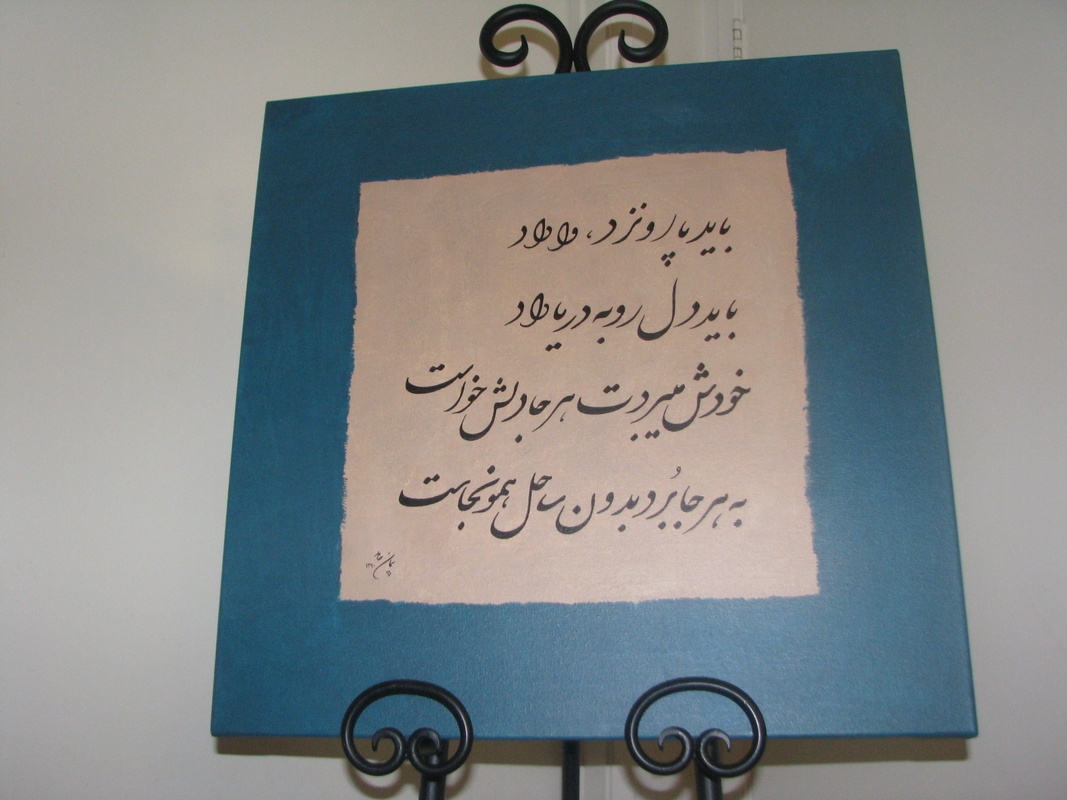 باید پارو نزد، وا داد
باید دل رو به دریا داد
خودش میبردت هر جا دلش خواست
به هر جا بُرد بدون ساحل همونجاست